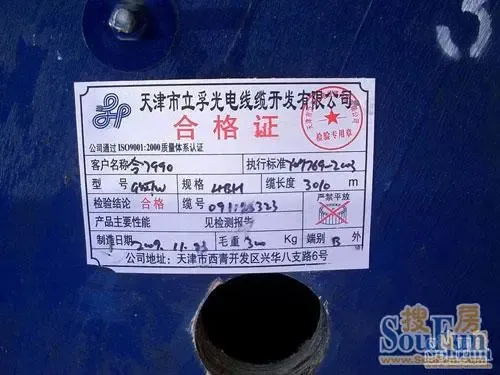 3
天津市立孚光电线缆开发有限公司
合格证
检验专用章
公司通过ISO9001:2000质量体系认证
客户名称 执行标准YD/T769-2003
型号 GYXTW 规格 4B1 缆长度 3010 m
检验结论 合格 缆号 严禁平放
产品主要性能 见检测报告
制造日期 2009.11.23 毛重 300 Kg 端别 B 外
公司地址:天津市西青开发区兴华八支路6号
搜房
SouFun